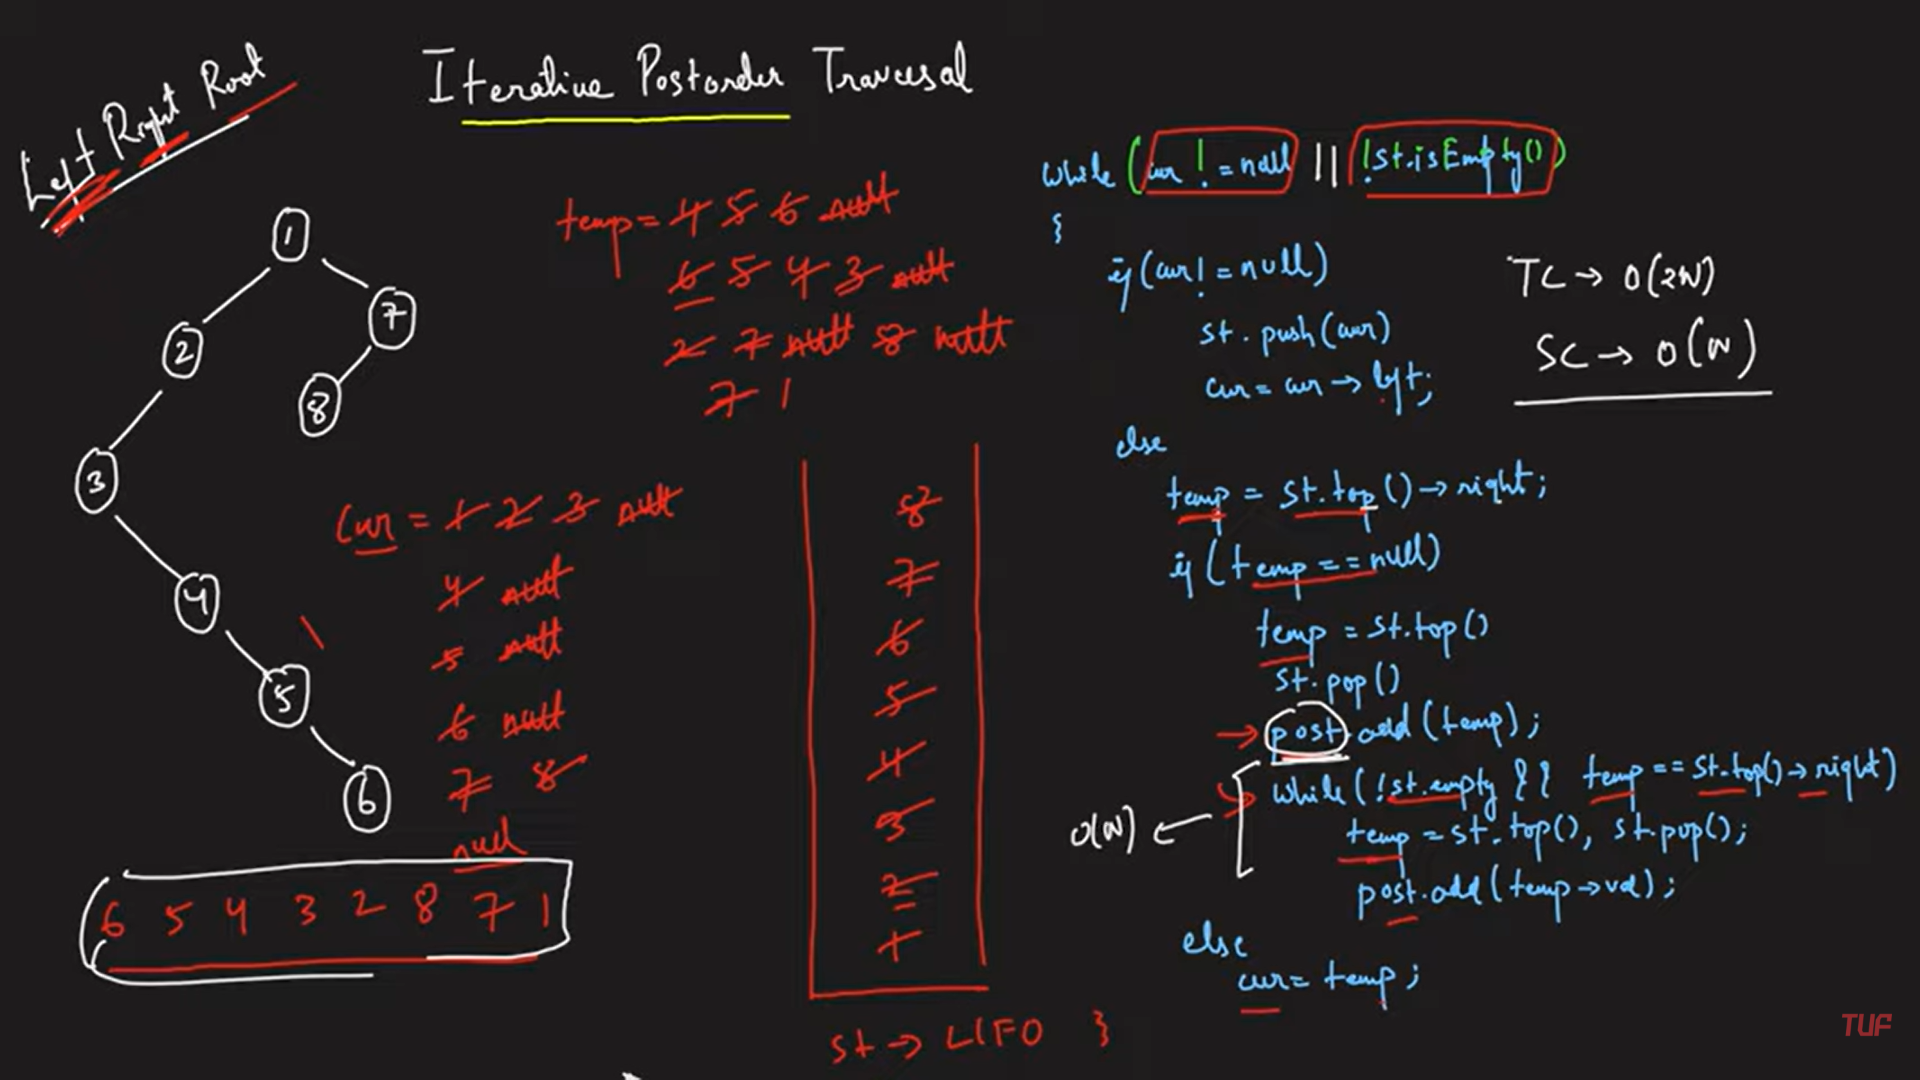 Left Right Root
Iterative Postorder Traversal
1
2
7
8
3
4
5
6
temp = 4 5 6 null
6 5 4 3 null
2 7 null 8 null
7 1
Cur = 1 2 3 null
4 null
5 null
6 null
7 8
null
6 5 4 3 2 8 7 1
8
7
6
5
4
3
2
1
st → LIFO
while (cur != null || !st.isEmpty())
{
if (cur != null)
st.push(cur)
cur = cur → left;
else
temp = st.top() → right;
if (temp == null)
temp = st.top()
st.pop()
→ post.add(temp);
while (!st.empty && temp == st.top() → right)
temp = st.top(), st.pop();
post.add(temp → val);
O(N) ←
else
cur = temp;
}
TC → O(2N)
SC → O(N)
TUF